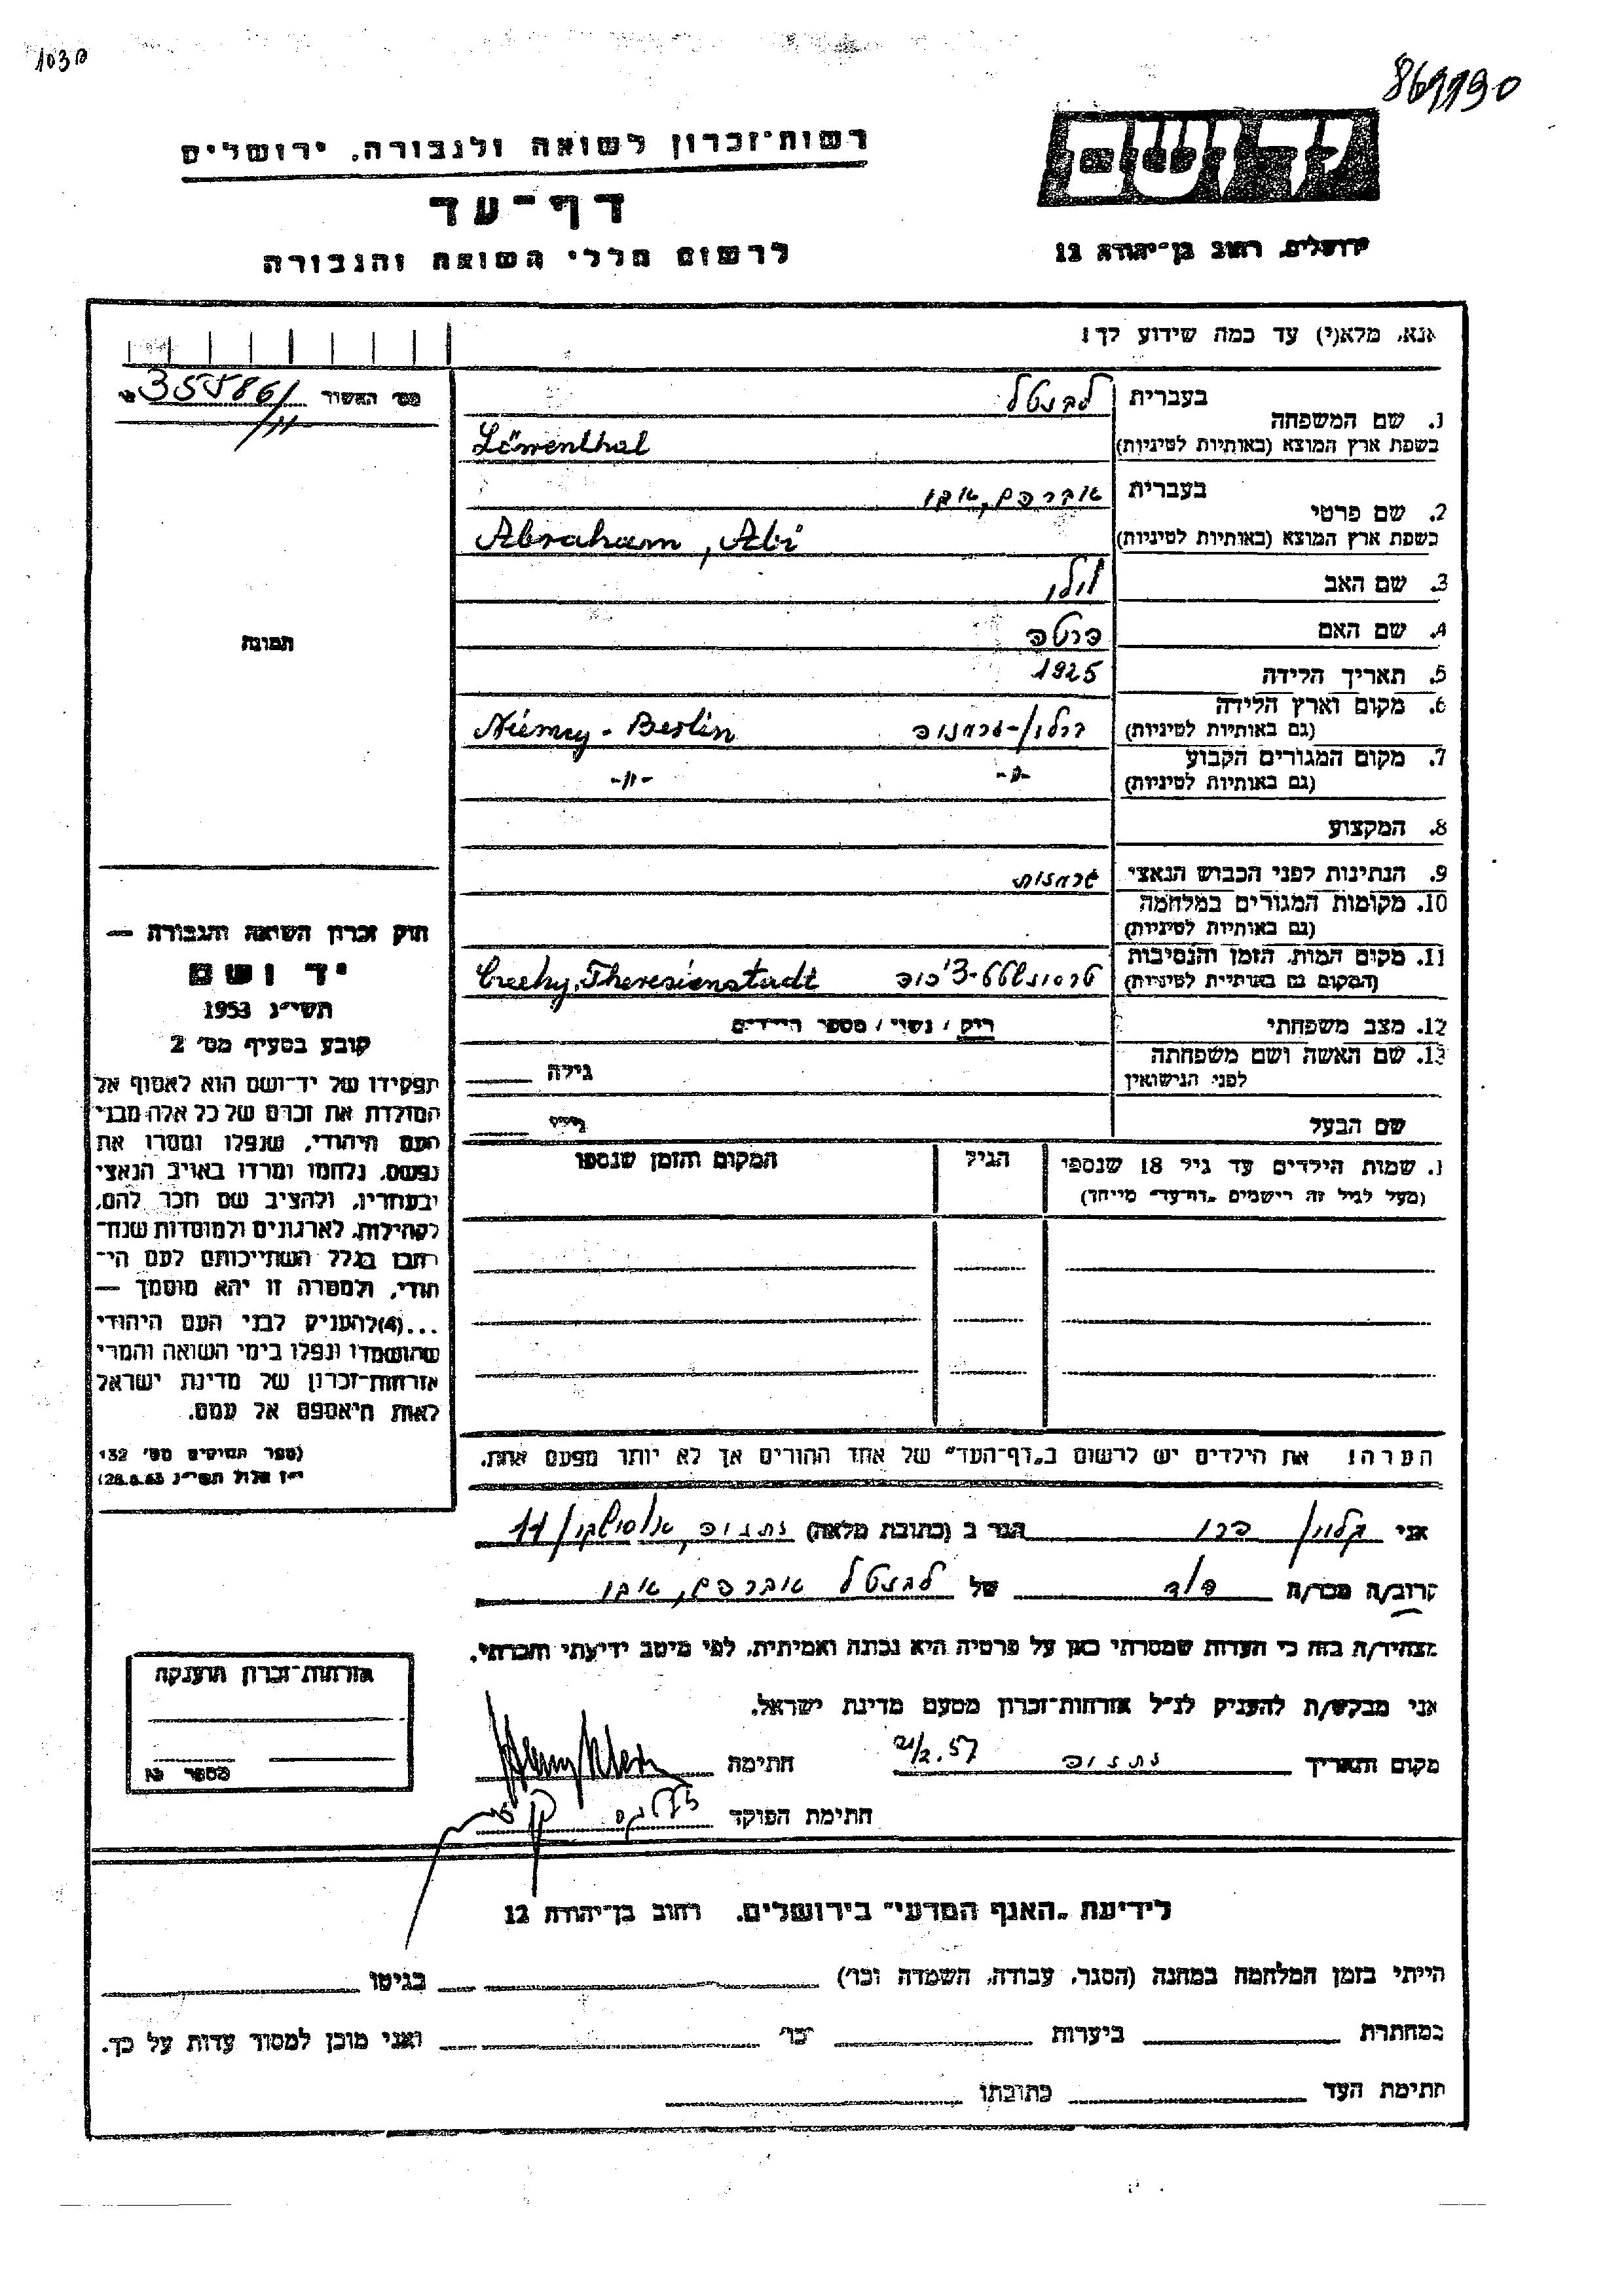 103
869190
יד ושם
רשות־זכרון לשואה ולגבורה, ירושלים
דף־עד
לרשום חללי השואה והגבורה
ירושלים, רחוב בן־יהודה 12
אנא, מלא(י) עד כמה שידוע לך!
מס׳ האשור 355861
-"-
תמונה
1. שם המשפחה
בעברית לבנטל
בשפת ארץ המוצא (באותיות לטיניות) Löwenthal
2. שם פרטי
בעברית אברהם, אבי
בשפת ארץ המוצא (באותיות לטיניות) Abraham, Abi
3. שם האב וילי
4. שם האם ברטה
5. תאריך הלידה 1925
6. מקום וארץ הלידה
(גם באותיות לטיניות) ברלין-גרמניה Niemcy - Berlin
7. מקום המגורים הקבוע
(גם באותיות לטיניות) -"- -"-
8. המקצוע
9. הנתינות לפני הכבוש הנאצי גרמנית
10. מקומות המגורים במלחמה
(גם באותיות לטיניות)
11. מקום המות, הזמן והנסיבות
(המקום גם באותיות לטיניות) טרזינשטט-צ'כיה Czechy, Theresienstadt
12. מצב משפחתי רוק / נשוי / מספר הילדים
13. שם האשה ושם משפחתה
לפני הנישואין גילה
שם הבעל גילו
שמות הילדים עד גיל 18 שנספו
(מעל לגיל זה רישמים „דף־עד” מייחד)
הגיל
המקום והזמן שנספו
חוק זכרון השואה והגבורה —
יד ושם
תשי״ג 1953
קובע בסעיף מס׳ 2
תפקידו של יד־ושם הוא לאסוף אל
המולדת את זכרם של כל אלה מבני
העם היהודי, שנפלו ומסרו את
נפשם, נלחמו ומרדו באויב הנאצי
ובעוזריו, ולהציב שם וזכר להם,
לקהילות, לארגונים ולמוסדות שנח־
רבו בגלל השתייכותם לעם היה־
הודי, ולמטרה זו יהא מוסמך —
...(4) להעניק לבני העם היהודי
שהושמדו ונפלו בימי השואה והמרי
אזרחות־זכרון של מדינת ישראל
לאות היאספם אל עמם.
(ספר החוקים מס׳ 132
י״ז אלול תשי״ג 28.8.53)
הערה! את הילדים יש לרשום ב„דף־העד” של אחד ההורים אך לא יותר מפעם אחת.
אני הרי הגר ב (כתובת מלאה) נתניה, 11
קרוב/ה מכר/ה דוד של לבנטל אברהם, אבי
מצהיר/ה בזה כי העדות שמסרתי כאן על פרטיה היא נכונה ואמיתית, לפי מיטב ידיעתי והכרתי.
אני מבקש/ת להעניק לנ״ל אזרחות־זכרון מטעם מדינת ישראל.
מקום ותאריך נתניה 21/2.57 חתימה
חתימת הפוקד
אזרחות־זכרון הוענקה
מספר
לידיעת „האגף המדעי” בירושלים, רחוב בן־יהודה 12
הייתי בזמן המלחמה במחנה (הסגר, עבודה, השמדה וכו׳) בגיטו
במחתרת ביערות וכו׳ ואני מוכן למסור עדות על כך.
חתימת העד כתובתו